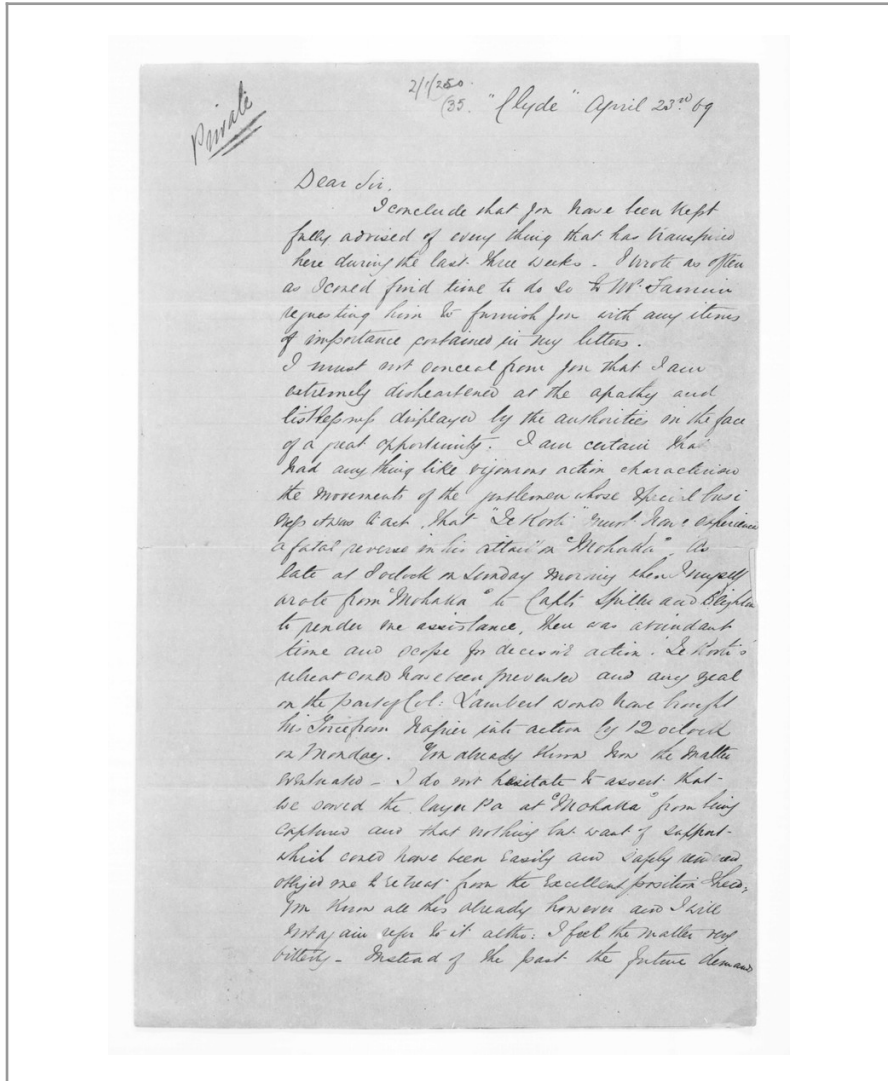 Private
"Clyde" April 23rd 69
Dear Sir.
I conclude that you have been kept
fully advised of every thing that has transpired
here during the last three weeks. I wrote as often
as I could find time to do so to Mr.
requesting him to furnish you with any items
of importance contained in my letters.
I must not conceal from you that I am
extremely disheartened at the apathy and
listlessness displayed by the authorities in the face
of a great opportunity. I am certain that
had any thing like vigorous action characterised
the movements of the gentlemen whose special busi
ness it was to act, that "Te Kooti" must have experience
a fatal reverse in his attack on "Mohaka". As
late as 8 oclock on Sunday morning when I myself
wrote from "Mohaka" to Capts Spiller and
to render me assistance, there was abundant
time and scope for decisive action. Te Kooti's
retreat could have been prevented and any zeal
on the part of Col: Lambert would have brought
his Force from Napier into action by 12 oclock
on Monday. You already know how the matter
eventuated - I do not hesitate to assert that
we saved the large Pa at "Mohaka" from being
captured and that nothing but want of support
which could have been easily and safely rendered
obliged me to retreat from the excellent position I held.
You know all this already however and I will
not again refer to it altho: I feel the matter very
bitterly - Instead of the past the future demand